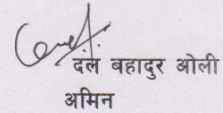 दल बहादुर ओली
अमिन